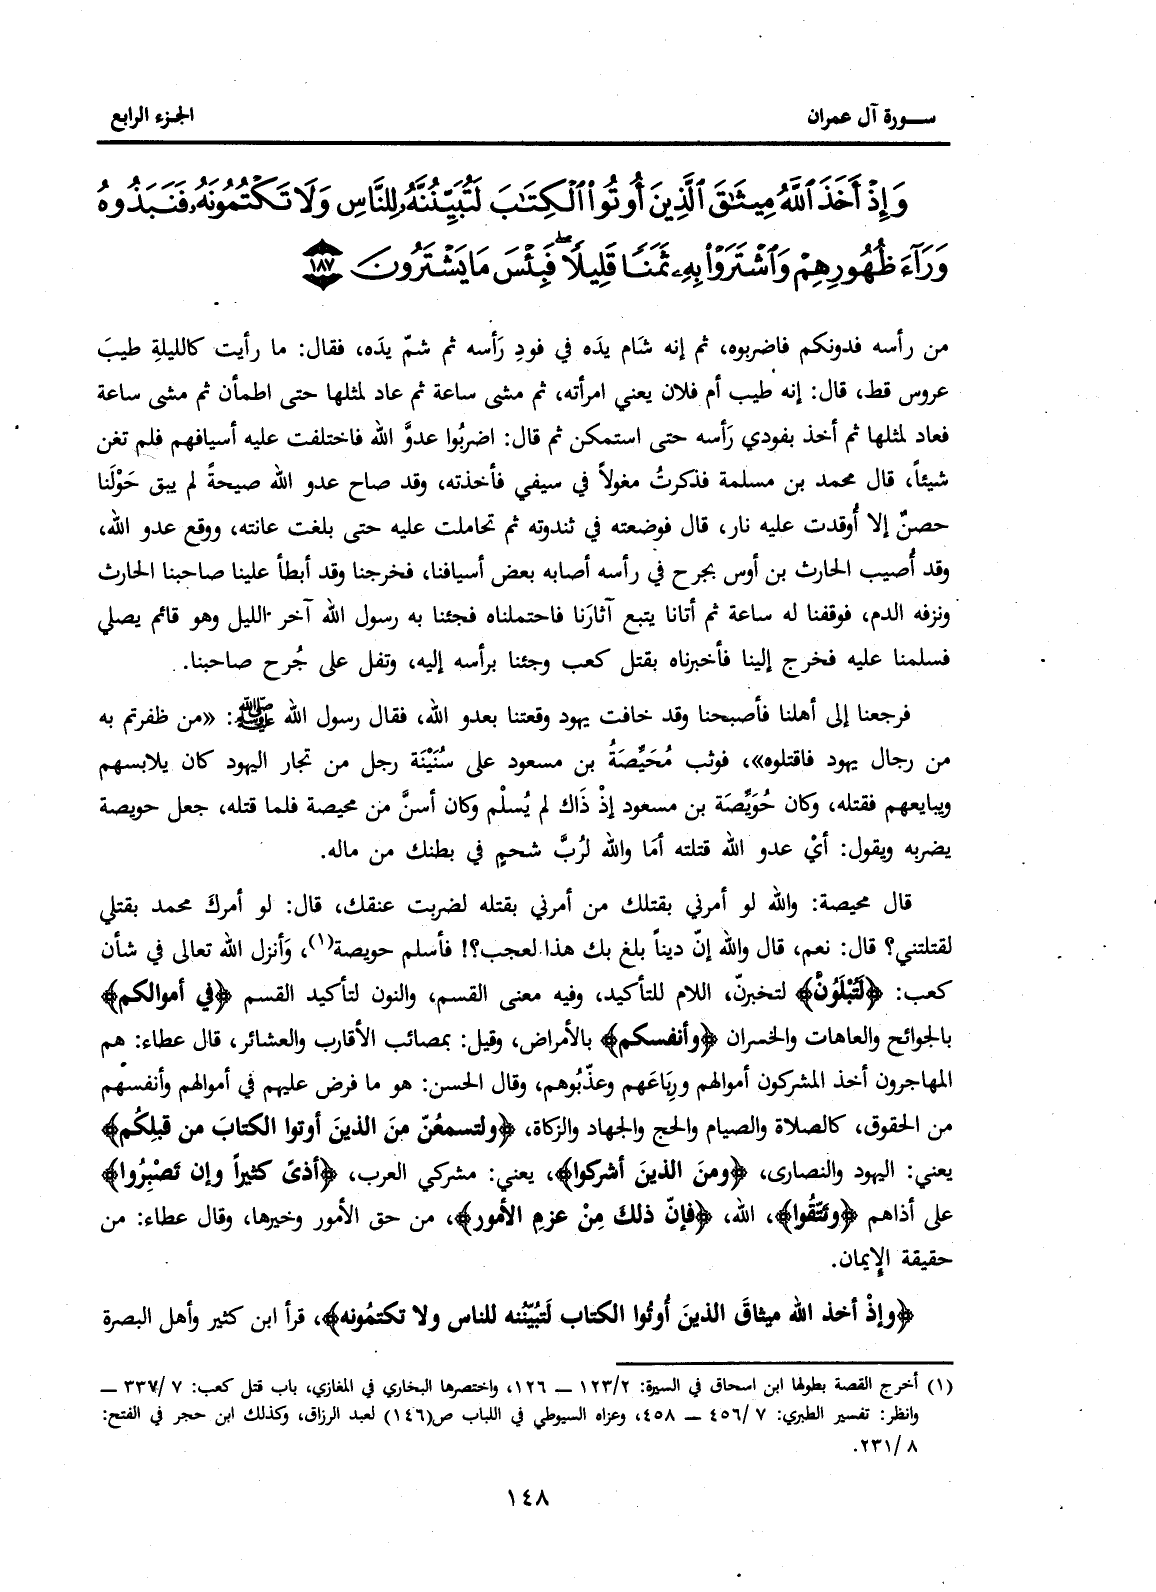 سورة آل عمران
الجزء الرابع
وَإِذْ أَخَذَ ٱللَّهُ مِيثَٰقَ ٱلَّذِينَ أُوتُوا۟ ٱلْكِتَٰبَ لَتُبَيِّنُنَّهُۥ لِلنَّاسِ وَلَا تَكْتُمُونَهُۥ فَنَبَذُوهُ
وَرَآءَ ظُهُورِهِمْ وَٱشْتَرَوْا۟ بِهِۦ ثَمَنًا قَلِيلًا ۖ فَبِئْسَ مَا يَشْتَرُونَ ١٨٧
من رأسه فدونكم فاضربوه، ثم إنه شَام يدَه في فودِ رَأسه ثم شمّ يدَه، فقال: ما رأيت كالليلةِ طيبَ
عروس قط، قال: إنه طيب أم فلان يعني امرأته، ثم مشى ساعة ثم عاد لمثلها حتى اطمأن ثم مشى ساعة
فعاد لمثلها ثم أخذ بفودي رَأسه حتى استمكن ثم قال: اضربُوا عدوَّ الله فاختلفت عليه أسيافهم فلم تغن
شيئاً، قال محمد بن مسلمة فذكرتُ مغولاً في سيفي فأخذته، وقد صاح عدو الله صيحةً لم يبق حَوْلَنا
حصنٌ إلا أُوقدت عليه نار، قال فوضعته في ثندوته ثم تحاملت عليه حتى بلغت عانته، ووقع عدو الله،
وقد أُصيب الحارث بن أوس بجرح في رأسه أصابه بعض أسيافنا، فخرجنا وقد أبطأ علينا صاحبنا الحارث
ونزفه الدم، فوقفنا له ساعة ثم أتانا يتبع آثارَنا فاحتملناه فجئنا به رسول الله آخر الليل وهو قائم يصلي
فسلمنا عليه فخرج إلينا فأخبرناه بقتل كعب وجئنا برأسه إليه، وتفل على جُرح صاحبنا.
فرجعنا إلى أهلنا فأصبحنا وقد خافت يهود وقعتنا بعدو الله، فقال رسول الله ﷺ: «من ظفرتم به
من رجال يهود فاقتلوه»، فوثب مُحَيِّصَةُ بن مسعود على سُنَيْنَة رجل من تجار اليهود كان يلابسهم
ويبايعهم فقتله، وكان حُوَيِّصَة بن مسعود إذْ ذَاك لم يُسلْم وكان أسنَّ من محيصة فلما قتله، جعل حويصة
يضربه ويقول: أيْ عدو الله قتلته أمَا والله لرُبَّ شحمٍ في بطنك من ماله.
قال محيصة: والله لو أمرني بقتلك من أمرني بقتله لضربت عنقك، قال: لو أمركَ محمد بقتلي
لقتلتني؟ قال: نعم، قال والله إنّ ديناً بلغ بك هذا لعجب؟! فأسلم حويصة(١)، وَأنزل الله تعالى في شأن
كعب: ﴿لَتُبْلَوُنَّ﴾ لتخبرنّ، اللام للتأكيد، وفيه معنى القسم، والنون لتأكيد القسم ﴿في أموالكم﴾
بالجوائح والعاهات والخسران ﴿وأنفسكم﴾ بالأمراض، وقيل: بمصائب الأقارب والعشائر، قال عطاء: هم
المهاجرون أخذ المشركون أموالهم ورِبَاعَهم وعذّبُوهم، وقال الحسن: هو ما فرض عليهم في أموالهم وأنفسهم
من الحقوق، كالصلاة والصيام والحج والجهاد والزكاة، ﴿ولتسمعُنّ منَ الذينَ أوتوا الكتابَ من قبلِكُم﴾
يعني: اليهود والنصارى، ﴿ومنَ الذينَ أشركوا﴾، يعني: مشركي العرب، ﴿أذىً كثيراً وإن تَصْبِرُوا﴾
على أذاهم ﴿وتَتّقُوا﴾، الله، ﴿فإنّ ذلكَ مِنْ عزمِ الأمور﴾، من حق الأمور وخيرها، وقال عطاء: من
حقيقة الإيمان.
﴿وإذْ أخذ الله ميثاقَ الذينَ أُوتُوا الكتاب لَتُبيّنُنه للناس ولا تكتمُونه﴾، قرأ ابن كثير وأهل البصرة
(١) أخرج القصة بطولها ابن اسحاق في السيرة: ١٢٣/٢ ــ ١٢٦، واختصرها البخاري في المغازي، باب قتل كعب: ٣٣٧/٧ ــ
وانظر: تفسير الطبري: ٤٥٦/٧ ــ ٤٥٨، وعزاه السيوطي في اللباب ص(١٤٦) لعبد الرزاق، وكذلك ابن حجر في الفتح:
٢٣١/٨.
١٤٨